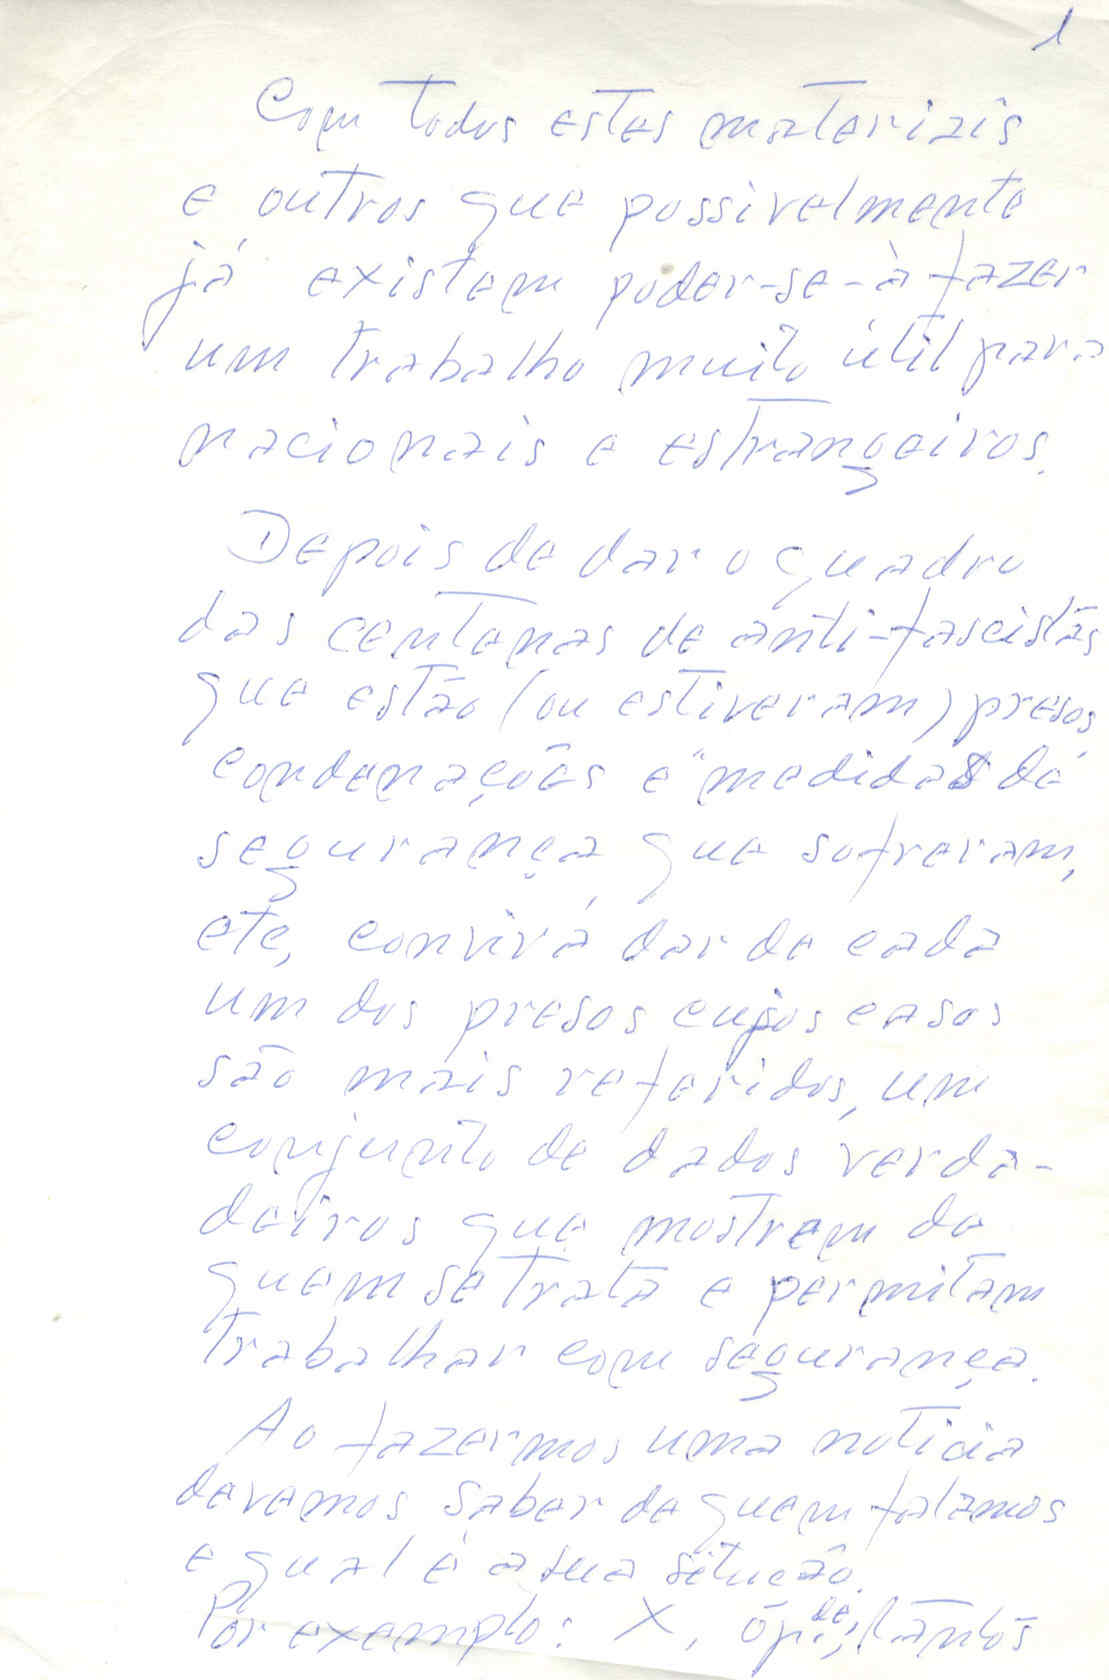 1
Com todos estes materiais
e outros que possivelmente
já existem poder-se-à fazer
um trabalho muito útil para
nacionais e estrangeiros.
Depois de dar o quadro
das centenas de anti-fascistas
que estão (ou estiveram) presos,
condenações e "medidas de
segurança, que sofreram,
etc, convirá dar de cada
um dos presos cujos casos
são mais referidos, um
conjunto de dados verda-
deiros que mostrem de
quem se trata e permitam
trabalhar com segurança.
Ao fazermos uma noticia
devemos saber de quem falamos
e qual é a sua situção.
Por exemplo: X, de tantos